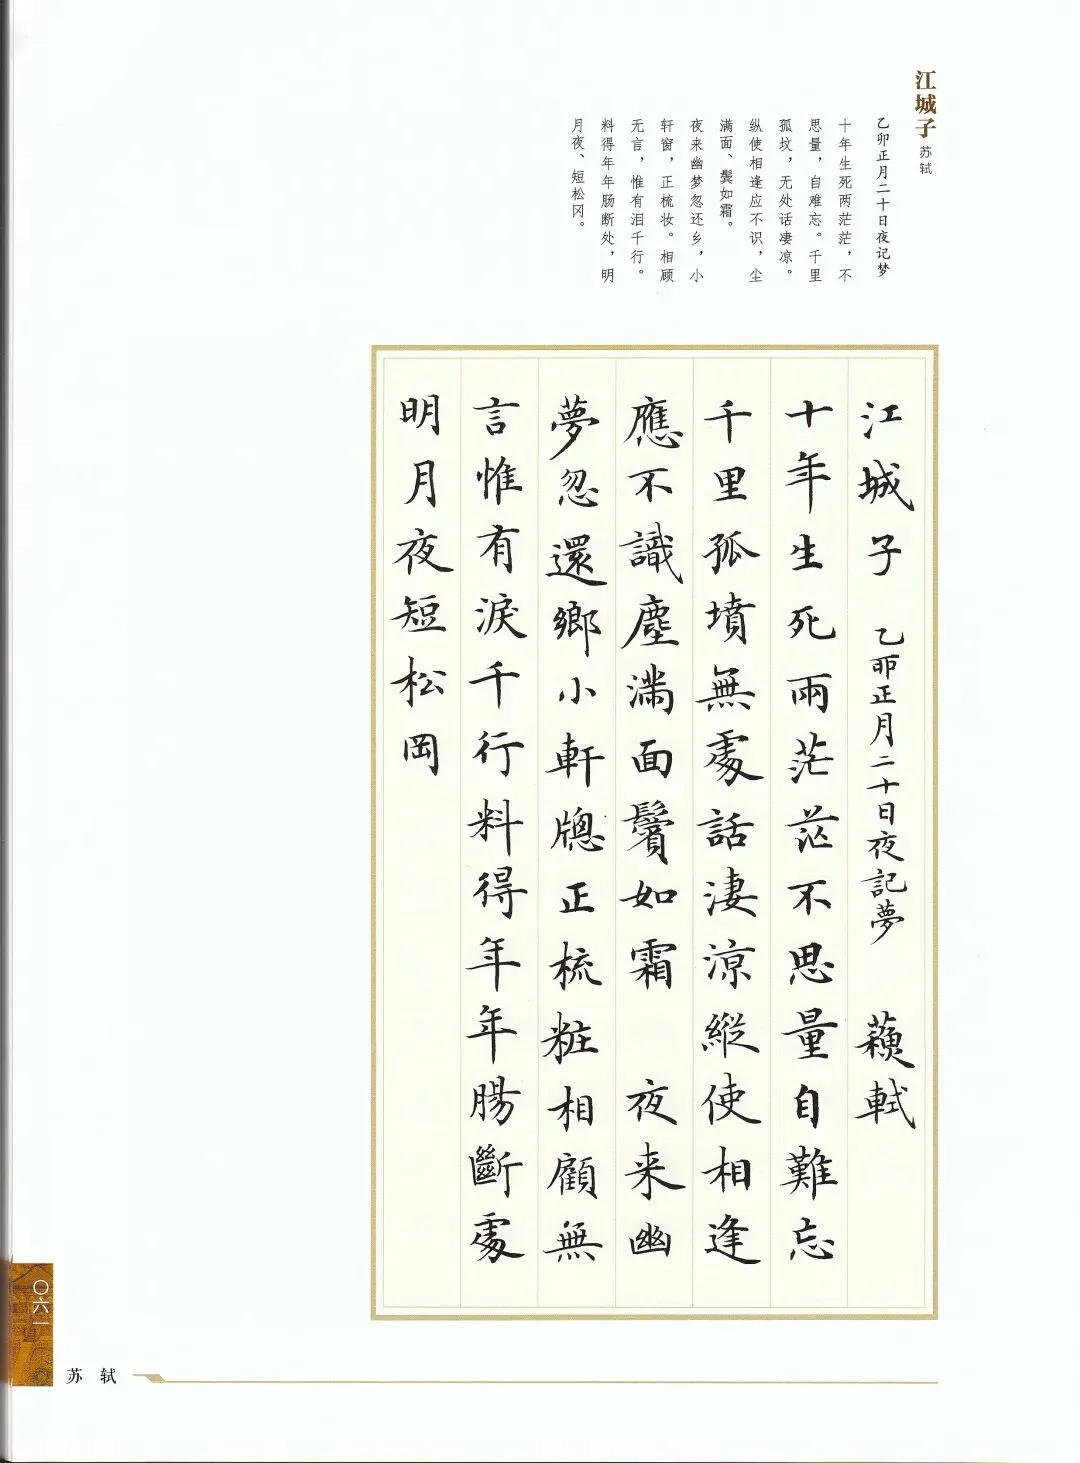 江城子 苏轼
乙卯正月二十日夜记梦
十年生死两茫茫，不
思量，自难忘。千里
孤坟，无处话凄凉。
纵使相逢应不识，尘
满面、鬓如霜。
夜来幽梦忽还乡，小
轩窗，正梳妆。相顾
无言，惟有泪千行。
料得年年肠断处，明
月夜、短松冈。
江城子 乙卯正月二十日夜記夢 蘓軾
十年生死兩茫茫不思量自難忘
千里孤墳無處話淒涼縱使相逢
應不識塵滿面鬢如霜 夜来幽
夢忽還鄉小軒牕正梳粧相顧無
言惟有淚千行料得年年腸斷處
明月夜短松岡
〇六一
苏 轼